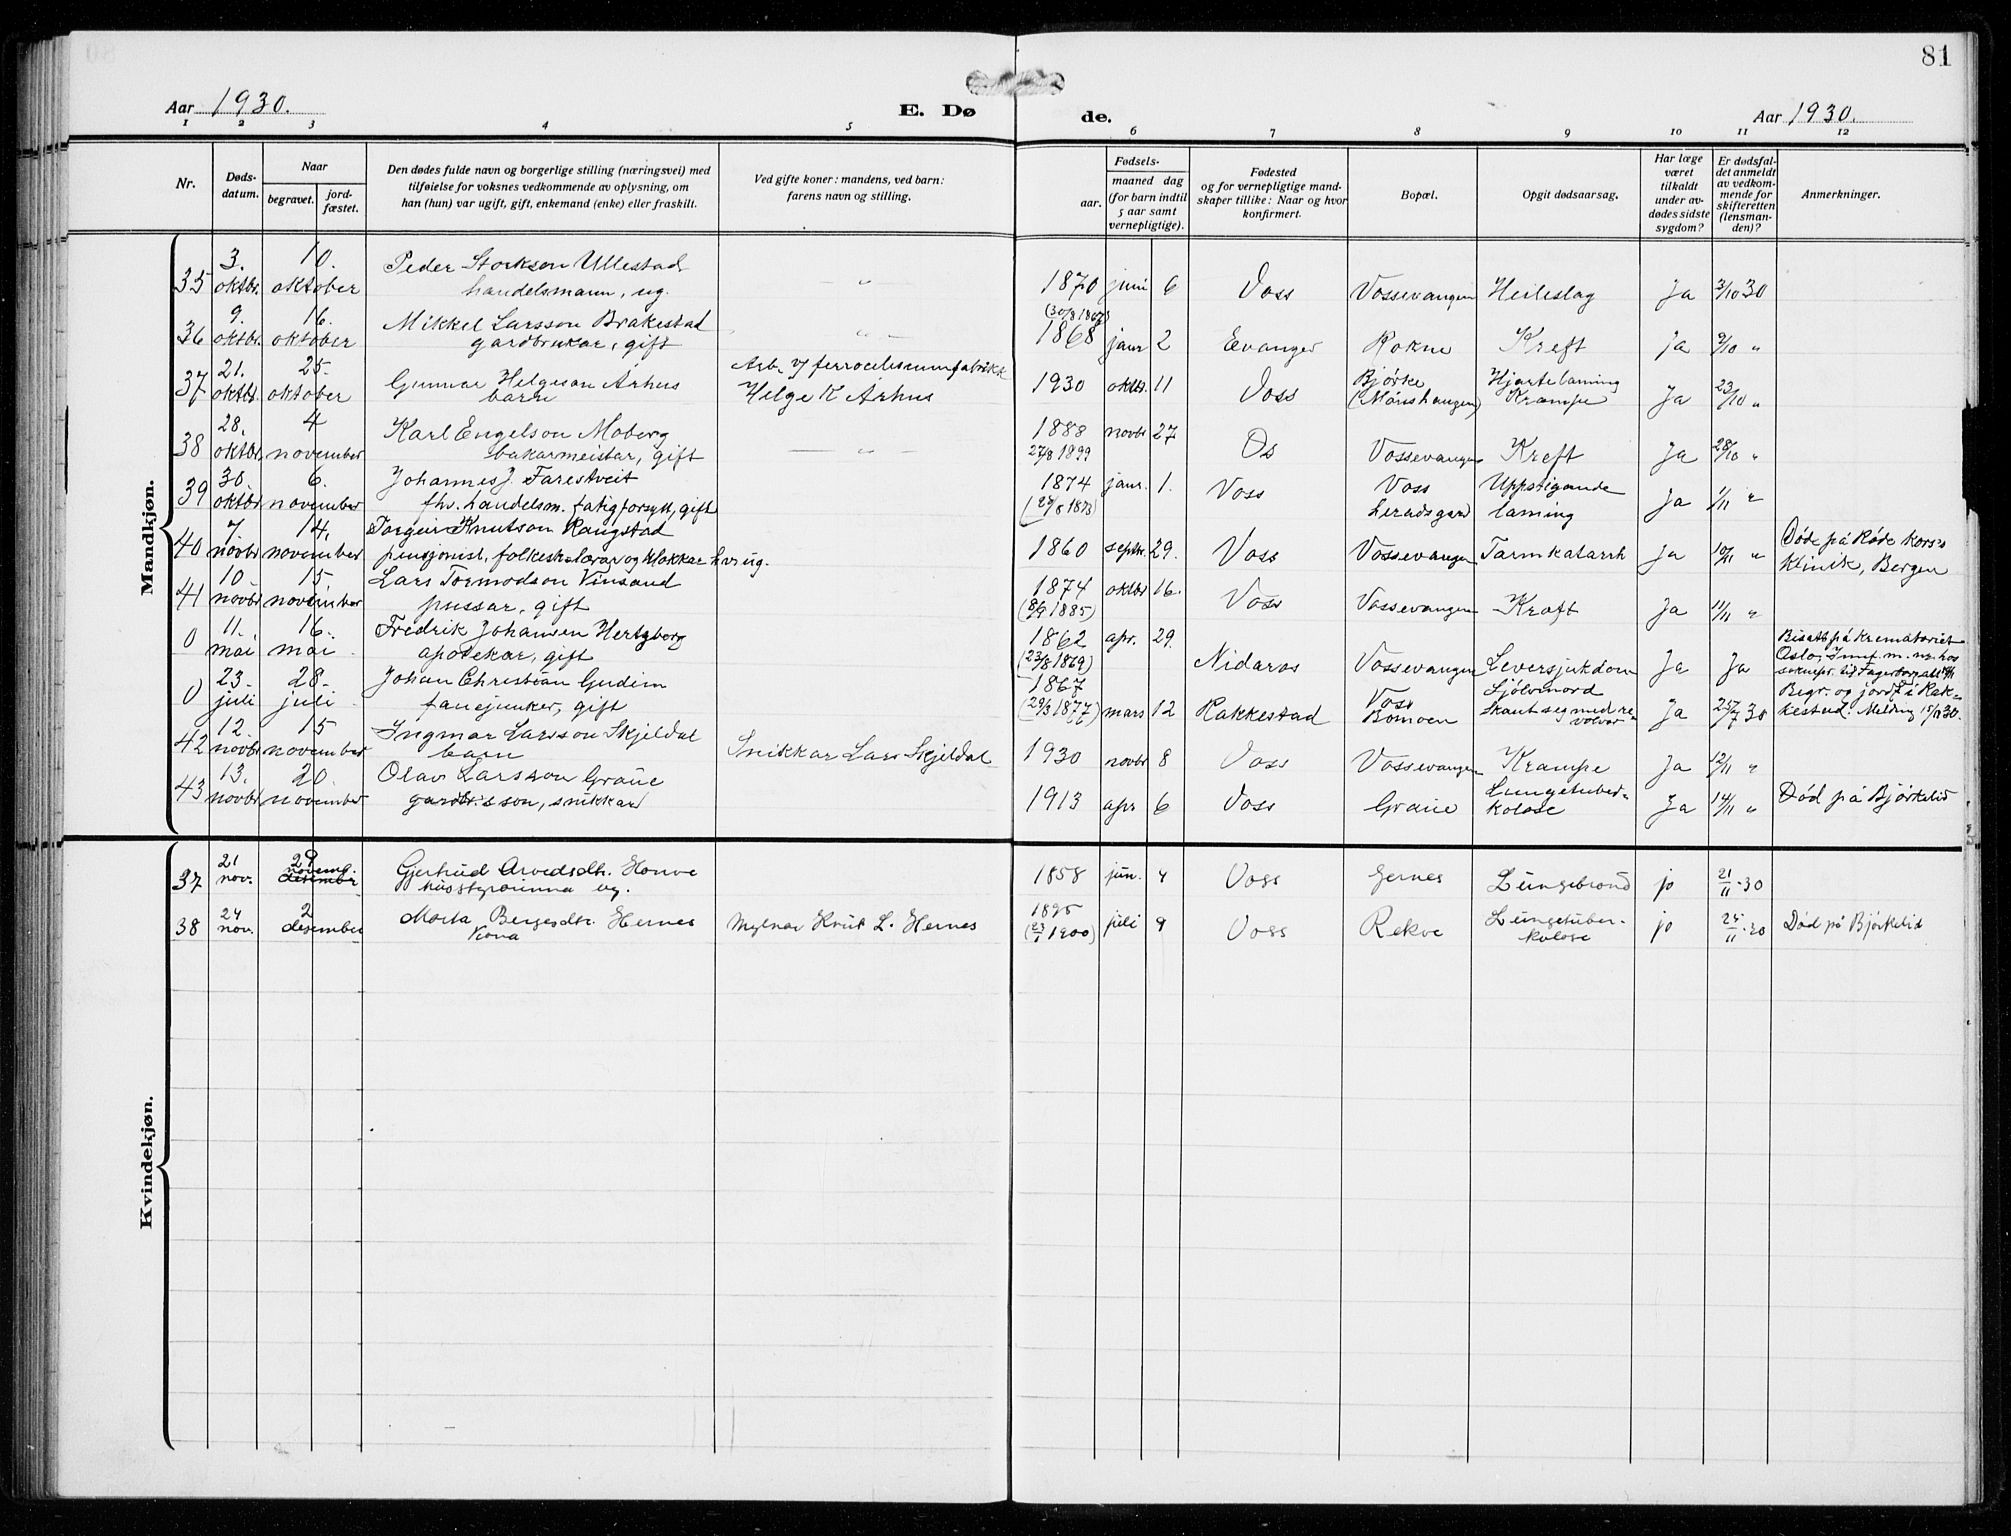 81
Aar 1930.
E. Dø
de.
Aar 1930.
1 2 3 4 5 6 7 8 9 10 11 12
Nr.
Døds-
datum.
Naar
begravet.
jord-
fæstet.
Den dødes fulde navn og borgerlige stilling (næringsvei) med
tilføielse for voksnes vedkommende av oplysning, om
han (hun) var ugift, gift, enkemand (enke) eller fraskilt.
Ved gifte koner: mandens, ved barn:
farens navn og stilling.
Fødsels-
aar.
maaned dag
(for barn indtil
5 aar samt
vernepligtige).
Fødested
og for vernepligtige mand-
skaper tillike: Naar og hvor
konfirmert.
Bopæl.
Opgit dødsaarsag.
Har læge
været
tilkaldt
under av-
dødes sidste
sygdom?
Er dødsfal-
det anmeldt
av vedkom-
mende for
skifteretten
(lensman-
den)?
Anmerkninger.
Mandkjøn.
35 3. oktbr. 10. oktober
Peder Storkson Ullestad
handelsmann, ug.
1870 juni 6 Voss Vossevangen Heileslag Ja 3/10 30
36 9. oktbr. 16. oktober
Mikkel Larsson Brakestad
gardbrukar, gift
1868 janr 2 Evanger Rokne Kreft Ja 9/10 "
37 21. oktbr. 25. oktober
Gunnar Helgeson Århus
barn
Arb. v/ ferrocelisiumfabrikk
Helge K Århus
1930 oktbr. 11 Voss Bjørke
(Mønshaugen)
Hjartelaming
Krampe
Ja 23/10 "
38 28. oktbr. 4 november
Karl Engelson Moberg
bakarmeister, gift
1888
27/8 1899
novbr 27 Os Vossevangen Kreft Ja 28/10 "
39 30. oktbr 6. november
Johannes J. Farestveit
fhv. handelsm. fatigforsytt, gift
1874 janr. 1. Voss Voss
Uppstigande
laming
Ja 1/11 "
40 7 novbr 14. november
Torgeir Knutson Rangstad
pensjonist, folkeskolelærar og klokkar hv. ug.
1860 septr. 29. Voss Vossevangen Tarmkatarrh Ja 10/11 "
Døde på Røde Kors's
Klinik, Bergen
41 10 novbr 15. november
Lars Tormodson Vinsand
pussar, gift
1874
(8/9 1885)
oktbr 16. Voss Vossevangen Kreft Ja 11/11 "
0 11. mai 16. mai
Fredrik Johansen Hertzberg
apotekar, gift
1862
(23/8 1869)
apr. 29. Nidaros Vossevangen Leversjukdom Ja Ja
Bisatt på Krematoriet
Oslo,
0 23. juli 28. juli
Johan Christian Gudim
fanejunker, gift
1867
(29/3 1877)
mars 12 Rakkestad Voss
Bømoen
Sjølvmord
Skaut seg med re-
volver
Ja 25/7 30
Begr. og jordf. i Rak-
kestad. Melding 15/11 30.
42 12. novbr 15 november
Ingmar Larsson Skjeldal
barn
Snikkar Lars Skjeldal
1930 novbr 8 Voss Vossevangen Krampe Ja 12/11 "
43 13. novbr 20. november
Olav Larsson Graue
gardbr.s son, snikkar
1913 apr 6 Voss Graue Lungetuber-
kolose
Ja 14/11 "
Død på Bjørkelid
Kvindekjøn.
37 21 nov. 29 novemb.
Gjertrud Arvedsdtr. Honve
husstyrarinna ug.
1858 jun. 4 Voss Gernes Lungebrand jo 21/11 - 30
38 24 nov. 2 desember
Marta Bergesdtr. Hernes
Kona
Mylnar Knut L. Hernes
1895
(23/ 1900)
juli 9 Voss Rekve Lungetuber-
kolose
jo 25/11 - 30
Død på Bjørkelid